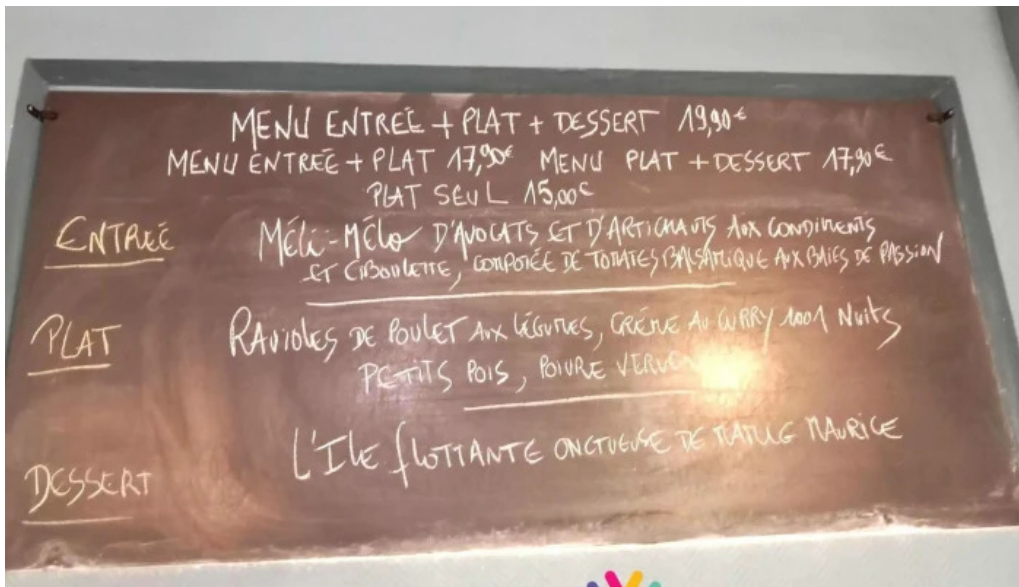 MENU ENTREÉ + PLAT + DESSERT 19,90€
MENU ENTREÉ + PLAT 17,90€ MENU PLAT + DESSERT 17,90€
PLAT SEUL 15,00€
ENTREÉ
MÉLI-MÉLO D'AVOCATS ET D'ARTICHAUTS AUX CONDIMENTS
ET CIBOULETTE, COMPOTÉE DE TOMATES BALSAMIQUE AUX BAIES DE PASSION
PLAT
RAVIOLES DE POULET AUX LÉGUMES, CRÉME AU CURRY 1001 NUITS
PETITS POIS, POIVRE
DESSERT
L'ILE FLOTTANTE ONCTUEUSE DE MAURICE